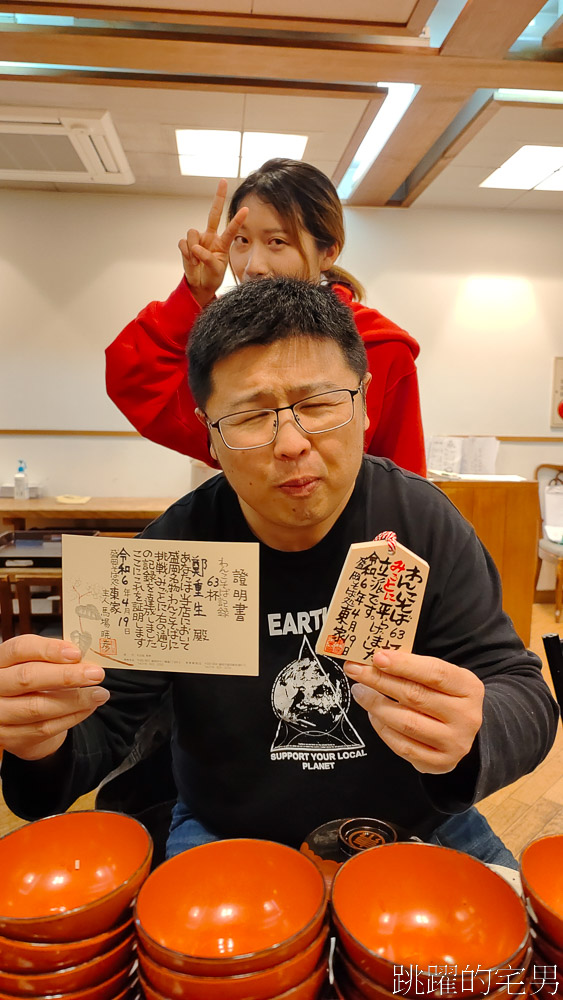 證明書
わんこそば記録
63杯
鄭重生 殿
あなたは当店において
盛岡名物わんこそばに
挑戦、みごとに右の通り
の記録を達成しました
ここにこれを証明します
令和6年4月19日
東家
わんこそば
63
みごとに平らげました
立派です。
令和6年4月19日
東家
EARTH
SUPPORT YOUR LOCAL
PLANET
跳躍的宅男